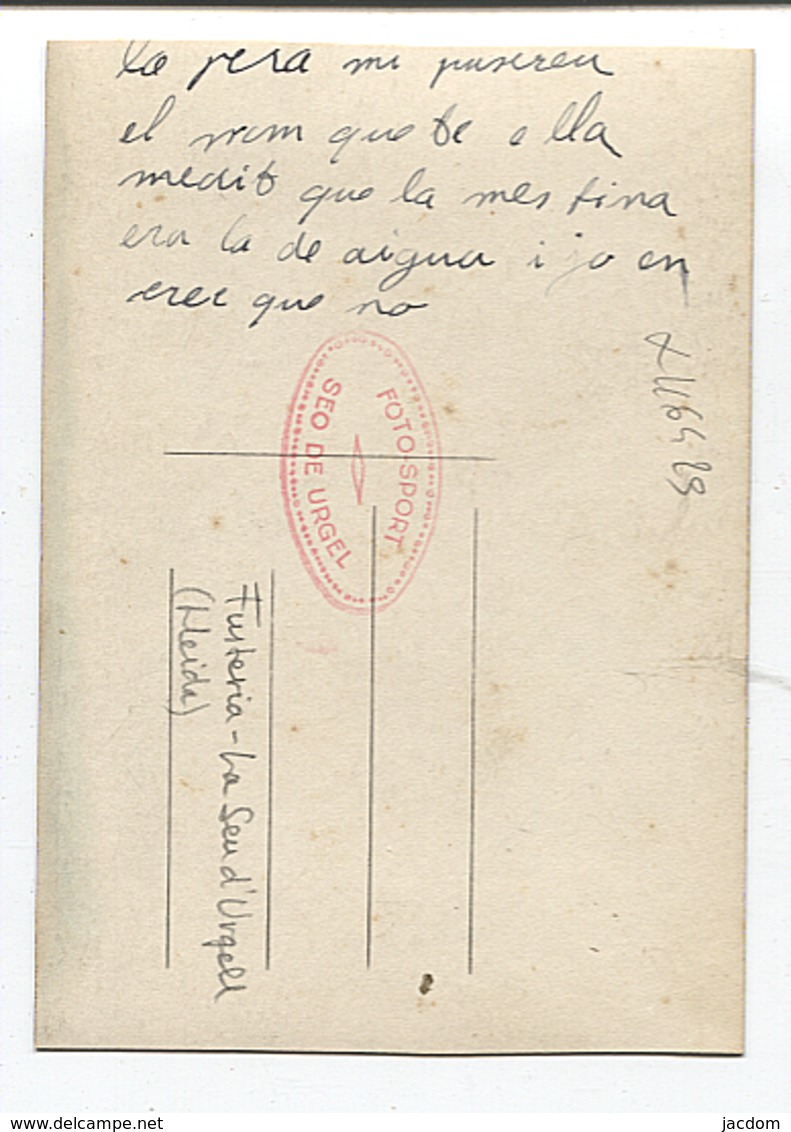 la pera mi pusereu
el nom que te ella
medit que la mes fina
era la de aigua i jo en
crec que no
FOTO-SPORT
SEO DE URGEL
Fusteria - La Seu d'Urgell
(Lleida)
delcampe.net
jacdom